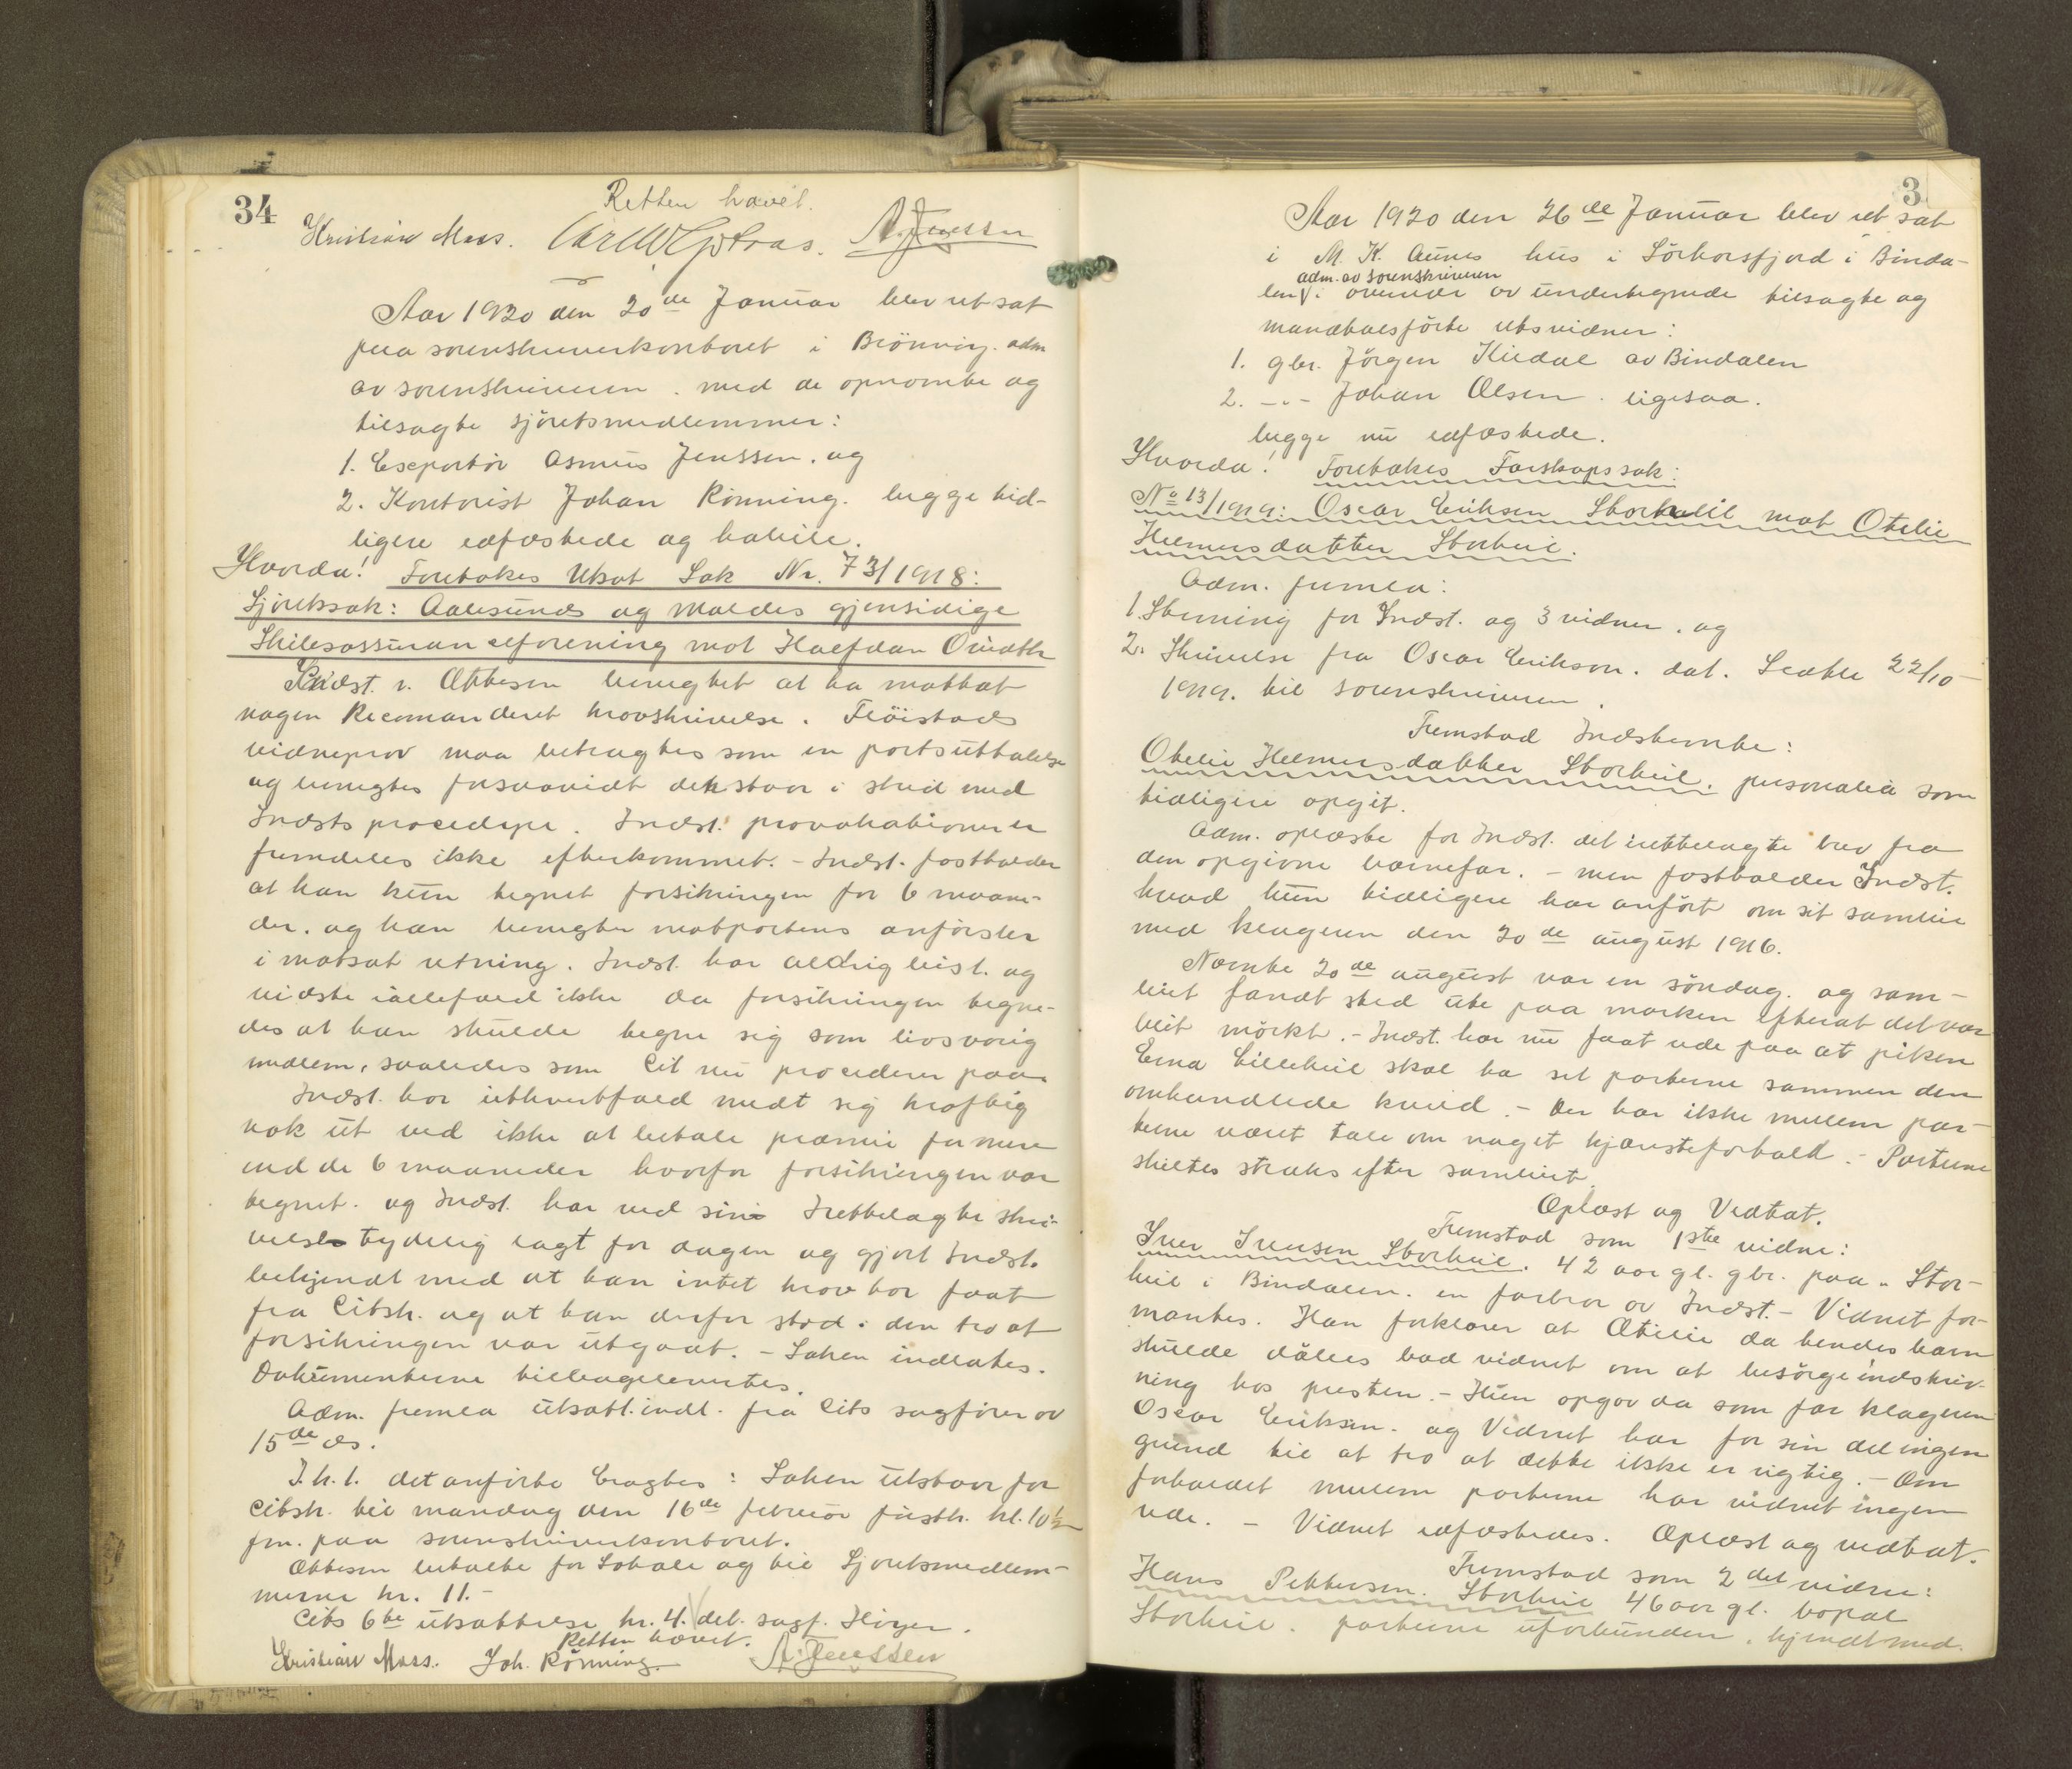 34
Retten hævet.
Kristian Moss. A. Jenssen
Aar 1920 den 20de Januar blev ret sat
paa sorenskriverkontoret i Brönnöy. adm
av sorenskriveren. med de opnævnte og
tilsagte sjöretsmedlemmer:
1. Exportör Asmus Jenssen. og
2. Kontorist Johan Rönning. begge tid-
ligere edfæstede og habile.
Hvorda! Foretokes Utsat Sak Nr. 73/1918:
Sjöretssak: Aalesunds og Moldes gjensidige
Skibsassuranceforening mot Halfdan Qvedtle
Indst. v. Ottesen benegtet at ha mottat
nogen Recomanderet kravskrivelse. Flöistads
vidneprov maa betragtes som en partsuttalelse
og benegtes forsaavidt den staar i strid med
Indsts procedyre. Indst. provokationer er
fremdeles ikke efterkommet. - Indst. fastholder
at han kun tegnet forsikringen for 6 maane-
der. og han benegter motpartens anförsler
i motsat retning. Indst. har aldrig lest. og
vidste iallefald ikke da forsikringen tegne-
des at han skulde tegne sig som livsvarig
medlem, saaledes som Cit nu procederer paa.
Indst. har ialhvertfald meldt sig kraftig
nok ut ved ikke at betale præmie for mere
end de 6 maaneder hvorfor forsikringen var
tegnet. og Indst. har ved sin irettelagte skri-
velse tydelig lagt for dagen og gjort Indst.
bekjendt med at han intet krav har faat
fra Citsk. og at han derfor stod i den tro at
forsikringen var utgaat. - Saken indlates.
Dokumenterne tilbageleveertes.
Adm. fremla utsatt. indl. fra Cits sagförer av
15de ds.
I. h. t. det anförte Eragtes: Saken utstaar for
Citsk. til mandag den 16de februar förstk. kl. 10½
fm. paa sorenskriverkontoret.
Ottesen betalte for Lokale og til Sjöretsmedlem-
merne kr. 11.-
Cits 6te utsættelse kr. 4. det. sagf. Höyer.
Retten hævet.
Kristian Moss. Joh. Rönning. A. Jenssen
3
Aar 1920 den 26de Januar blev ret sat
i M. K. Aunes hus i Sörhorsfjord i Binda-
adm. av sorenskriveren
len i overvær av undertegnede tilsagte og
mandtalsförte retsvidner:
1. gbr. Jörgen Kildal av Bindalen
2. -"- Johan Olsen. ligesaa.
begge nu edfæstede.
Hvorda! Foretokes Farskapssak:
No 13/1919: Oscar Eriksen Storheil mot Otelie
Helmersdatter Storheil.
Adm. fremla:
1. Stevning for Indst. og 3 vidner. og
2. Skrivelse fra Oscar Eriksen. dat. Seattle 22/10-
1919. til sorenskriveren.
Fremstod Indstevnte:
Otelie Helmersdatter Storheil. personalia som
tidligere opgit.
Adm. oplæste for Indst. det irettelagte brev fra
den opgivne barnefar. - men fastholder Indst.
hvad hun tidligere har anfört om sit samleie
med klageren den 20de august 1916.
Nævnte 20de august var en söndag. og sam-
leiet fandt sted ute paa marken efterat det var
blit mörkt. - Indst. har nu faat vide paa at piken
Erna Lilleheil skal ha set parterne sammen den
omhandlede kveld. - Der har ikke mellem par-
terne været tale om noget kjæresteforhold. - Parterne
skiltes straks efter samleiet.
Oplæst og Vedtat.
Fremstod som 1ste vidne:
Iver Iversen Storheil. 42 aar gl. gbr. paa Stor-
heil i Bindalen. en farbror av Indst. - Vidnet for-
mantes. Han forklarer at Otilie da hendes barn
skulde döbes bad vidnet om at besörge indskriv-
ning hos presten. - Hun opgav da som far klageren
Oscar Eriksen. og Vidnet har for sin del ingen
grund til at tro at dette ikke er rigtig. - Om
forholdet mellem parterne har vidnet ingen
vide. - Vidnet edfæstedes. Oplæst og vedtat.
Fremstod som 2det vidne:
Hans Pettersen Storheil 46 aar gl. bopæl
Storheil. parterne uforbunden. kjendt med.